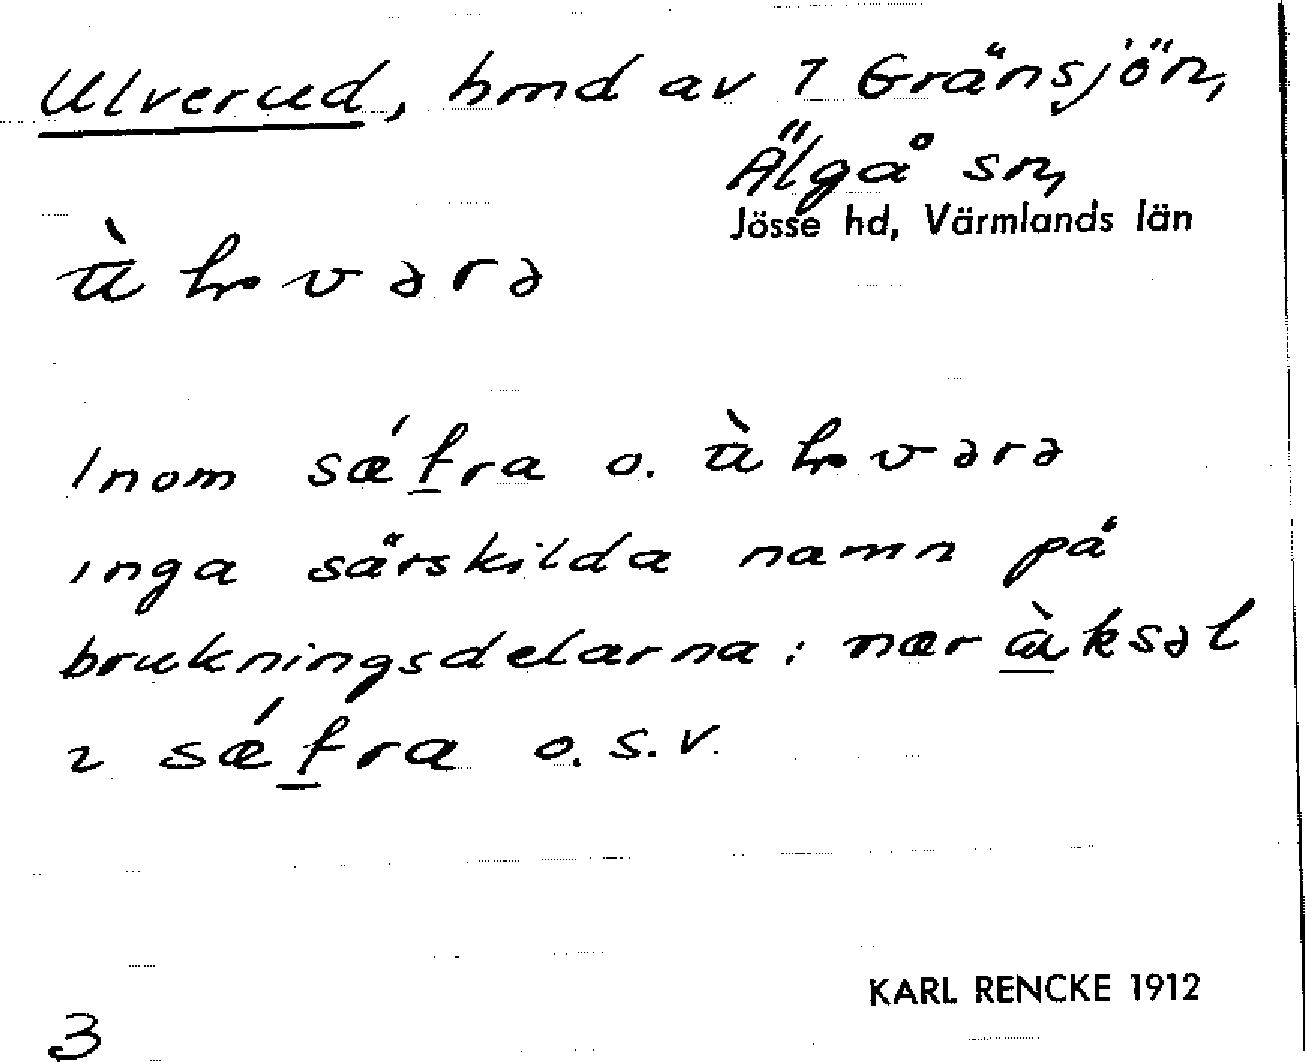 Ulverud, hmd av 7 Gränsjön,
Älgå sn,
Jösse hd, Värmlands län
Inom sǽfra o.
inga särskilda namn på
brukningsdelarna: nær àksəl
ı sǽfra o.s.v.
KARL RENCKE 1912
3